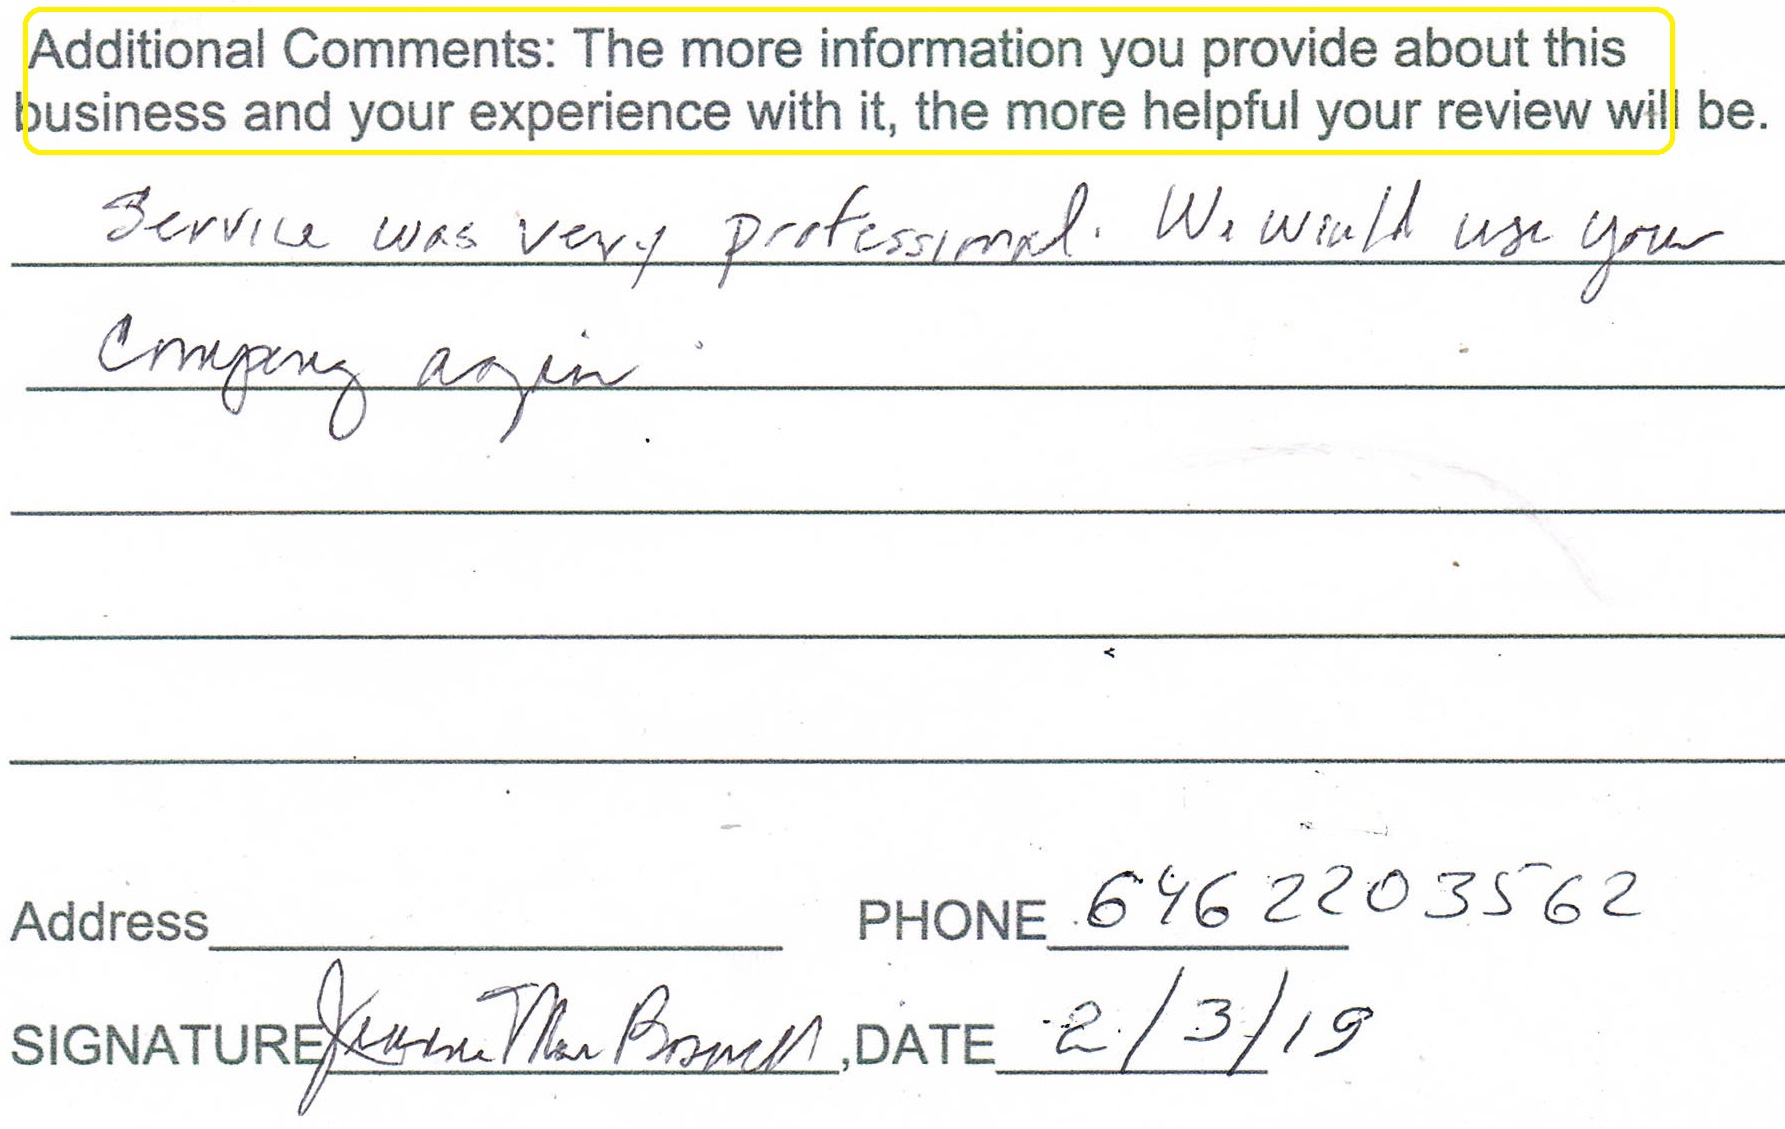 Additional Comments: The more information you provide about this
business and your experience with it, the more helpful your review will be.
Service was very professional. We would use your
Company again
Address PHONE 6462203562
SIGNATURE , DATE 2/3/19